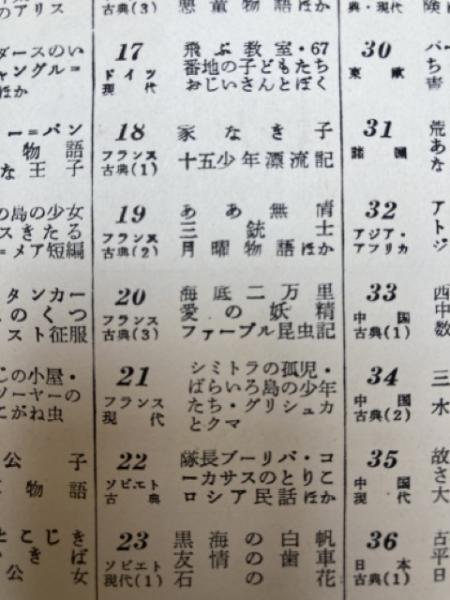 のアリス
古典(3)
悪童物語ほか
典・現代
険
ダースのい
ャングル=
ほか
17
ドイツ
現代
飛ぶ教室・67
番地の子どもたち
おじいさんとぼく
30
東欧
バー
ち
書
ー=パン
物語
な王子
18
フランス
古典(1)
家なき子
十五少年漂流記
31
諸国
荒
あ
な
の島の少女
スきたる
=メア短編
19
フランス
古典(2)
ああ無情
三銃士
月曜物語ほか
32
アジア・
アフリカ
ア
ト
ジ
タンカー
のくつ
スト征服
20
フランス
古典(3)
海底二万里
愛の妖精
ファーブル昆虫記
33
中国
古典(1)
西
中
数
じの小屋・
ソーヤーの
こがね虫
21
フランス
現代
シミトラの孤児・
ばらいろ島の少年
たち・グリシュカ
とクマ
34
中国
古典(2)
三
水
公子
物語
22
ソビエト
古典
隊長ブーリバ・コ
ーカサスのとりこ
ロシア民話ほか
35
中国
現代
故
さ
大
とこじき
いきば
公女
23
ソビエト
現代(1)
黒海の白帆
友情の歯車
石の花
36
日本
古典(1)
古
平
日